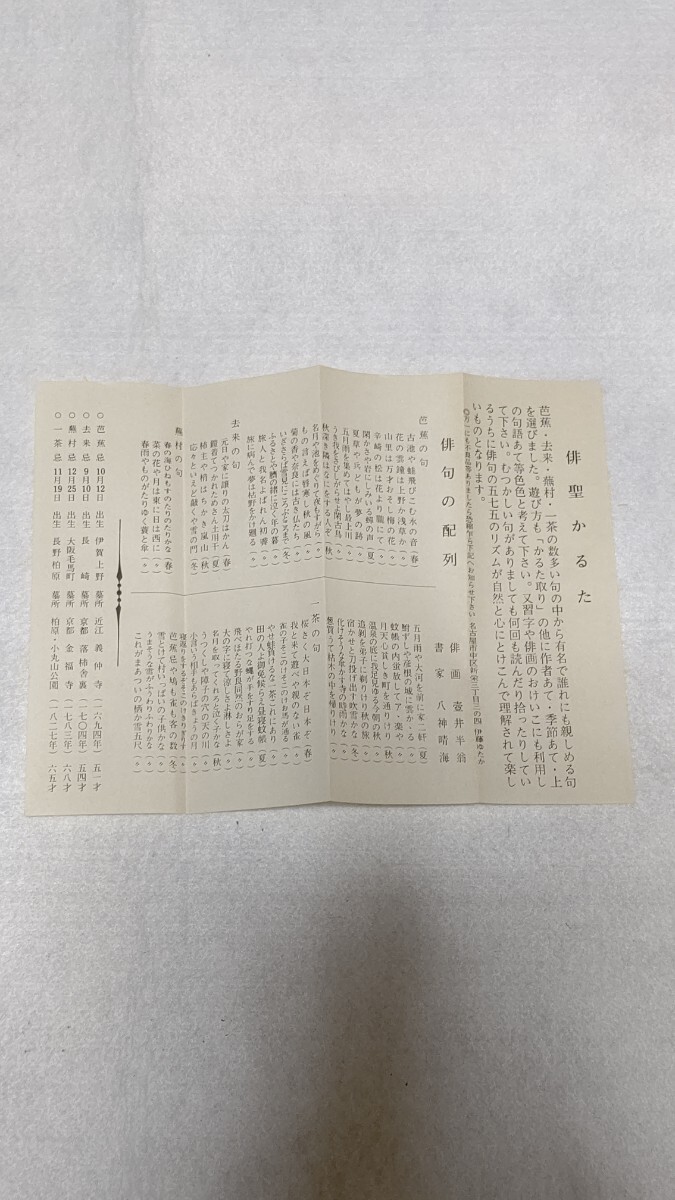 俳聖かるた
芭蕉・去来・蕪村・一茶の数多い句の中から有名で誰れにも親しめる句
を選びました。遊び方も「かるた取り」の他に作者あて・季節あて・上
の句語あて等色色と考えて下さい。又習字や俳画のおけいこにも利用し
て下さい。むつかしい句がありましても何回も読んだり拾ったりしてい
るうちに俳句の五七五のリズムが自然と心にとけこんで理解されて楽し
いものとなります。
不良品等ありましたら恐縮乍ら下記へお知らせ下さい 名古屋市中区 伊藤ゆたか
俳句の配列
俳画 壺井半翁
書家 八神晴海
芭蕉の句
古池や蛙飛びこむ水の音(春)
花の雲鐘は上野か浅草か(〃)
山里は万才おそし梅の花(〃)
辛崎の松は花より朧にて(〃)
閑かさや岩にしみ入る蝉の声(夏)
夏草や兵どもが夢の跡(〃)
五月雨を集めてはやし最上川(〃)
うき我をさびしがらせよ閑古鳥(〃)
秋深き隣はなにをする人ぞ(秋)
名月や池をめぐりて夜もすがら(〃)
もの言えば唇寒し秋の風(〃)
菊の香や奈良には古き仏たち(〃)
いざさらば雪見にころぶ所まで(冬)
ふるさとや臍の緒に泣く年の暮(〃)
旅人と我名よばれん初しぐれ(〃)
旅に病んで夢は枯野をかけ廻る(〃)
去来の句
元日や家に譲りの太刀はかん(春)
鎧着てつかれためさん土用干(夏)
柿主や梢はちかき嵐山(秋)
応々といえど敲くや雪の門(冬)
蕪村の句
春の海ひねもすのたりのたりかな(春)
菜の花や月は東に日は西に(〃)
春雨やものがたりゆく蓑と傘(〃)
五月雨や大河を前に家二軒(夏)
鮒ずしや彦根の城に雲かゝる(〃)
蚊帳の内蛍放してアゝ楽や(〃)
月天心貧しき町を通りけり(秋)
温泉の底に我足見ゆる今朝の秋(〃)
追剥を弟子に剃けり秋の旅(〃)
宿かせと刀投げ出す吹雪かな(冬)
化けそうな傘かす寺の時雨かな(〃)
葱買うて枯木の中を帰りけり(〃)
一茶の句
桜さく大日本ぞ日本ぞ(春)
我と来て遊べや親のない雀(〃)
雀の子そこのけそこのけお馬が通る(〃)
やせ蛙負けるな一茶これにあり(〃)
田の人よ御免候らえ昼寝蚊帳(夏)
やれ打つな蠅が手をすり足をする(〃)
大の字に寝て涼しさよ淋しさよ(〃)
名月を取ってくれろと泣く子かな(秋)
うつくしや障子の穴の天の川(〃)
芭蕉忌や鳩も雀も客の数(冬)
雪とけて村いっぱいの子供かな(〃)
うまそうな雪がふうわりふわりかな(〃)
これがまあついの栖か雪五尺(〃)
○芭蕉忌 10月12日 出生 伊賀上野 墓所 近江 義仲寺 (一六九四年) 五一才
○去来忌 9月10日 出生 長崎 墓所 京都 落柿舎裏 (一七〇四年) 五四才
○蕪村忌 12月25日 出生 大阪毛馬町 墓所 京都 金福寺 (一七八三年) 六八才
○一茶忌 11月19日 出生 長野柏原 墓所 柏原・小丸山公園 (一八二七年) 六五才